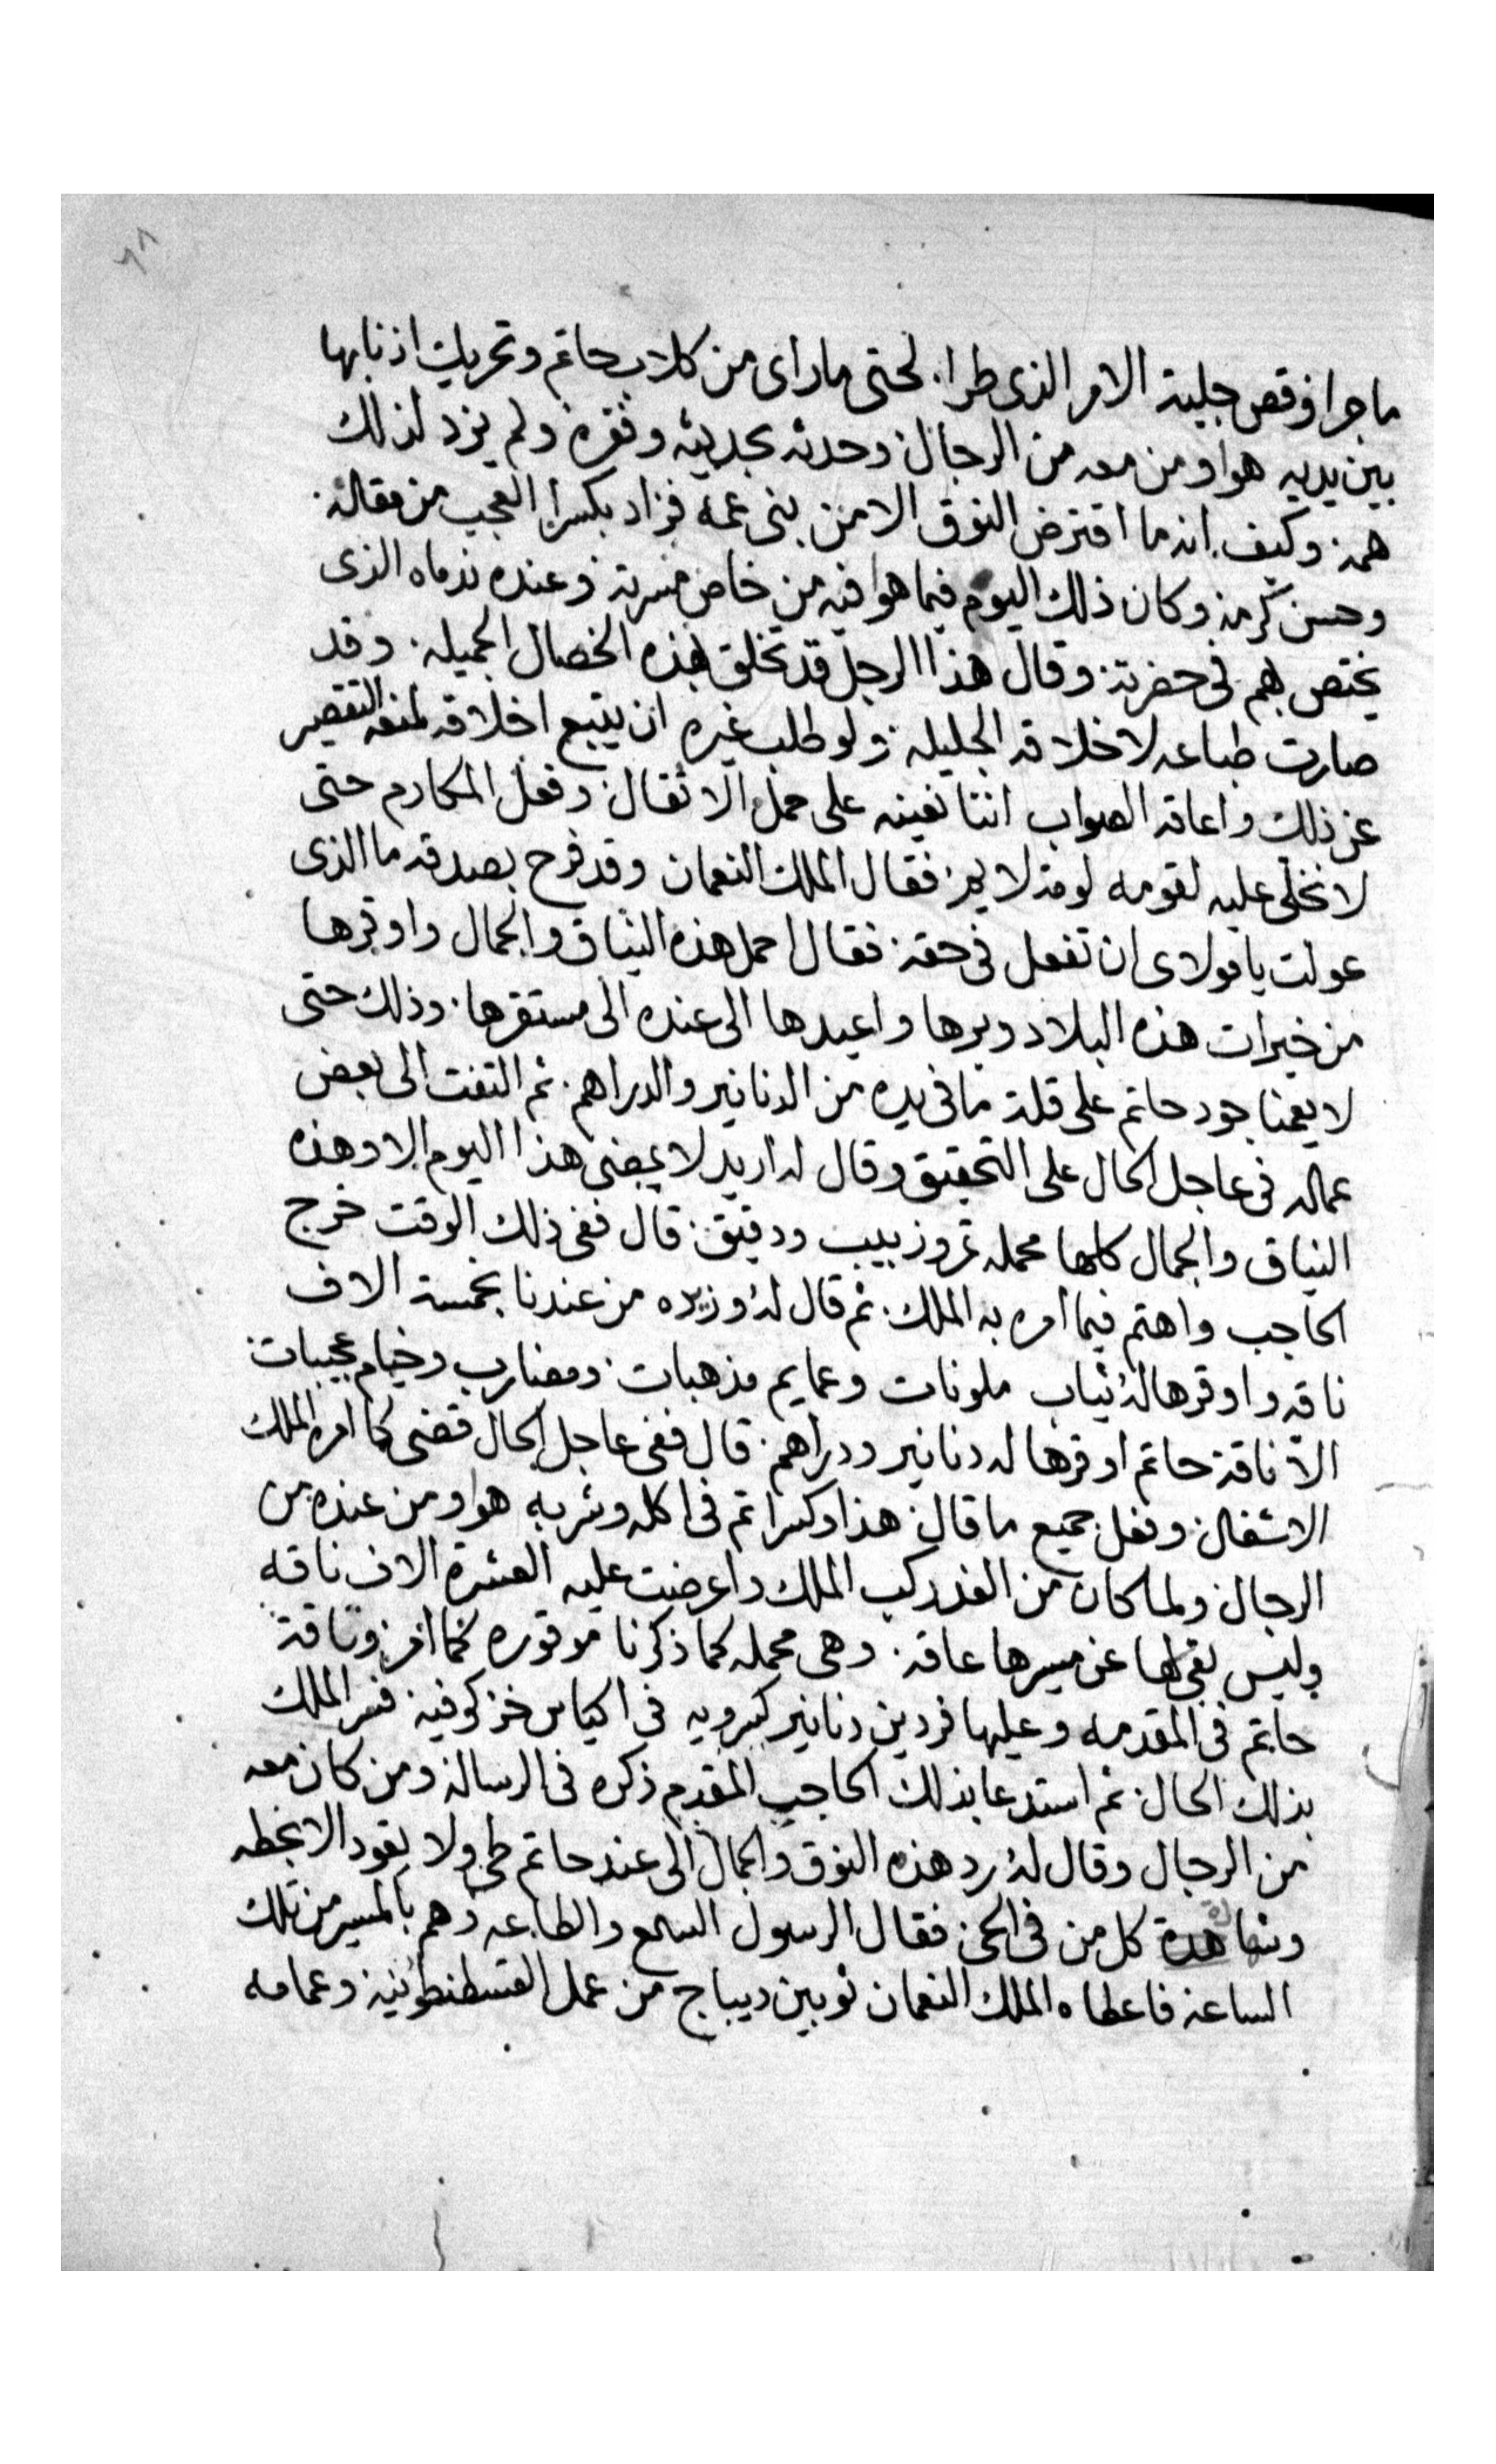 ٦٨
ما جرا وقص جلية الامر الذى طرا. لحتى ما راى من كلاب حاتم وتحريك اذنابها
بين يديه هو او من معه من الرجال وحدثه بحديثه وفقره ولم يزد لذلك
همه وكيف انه ما اقترض النوق الا من بنى عمه فزاد بكسرا العجب من مقاله.
وحسن كرمه وكان ذلك اليوم فيما هو افيه من خاص مسرته وعنده ندماه الذى
يختص بهم فى حضرته وقال هذا الرجل قد تخلق بهذه الخصال الجميله. وقد
صارت طباعه لاخلاقه الجليله ولو طلب غيره ان يتبع اخلاقه لمنعه التقصير
عن ذلك واعاقه الصواب اننا نعينه على حمل الاثقال وفعل المكارم حتى
لا نخلى عليه لقومه لومة لايم فقال الملك النعمان وقد فرح بصدقه ما الذى
عولت يا مولاى ان تفعل فى حقه فقال احمل هذه النياق والجمال واوقرها
من خيرات هذه البلاد وبرها واعيدها الى عنده الى مستقرها. وذلك حتى
لا يعمنا جود حاتم على قلة ما فى يده من الدنانير والدراهم. ثم التفت الى بعض
عماله فى عاجل الحال على التحقيق وقال له اريد لا يمضى هذا اليوم الا وهذه
النياق والجمال كلها محمله تمر وزبيب ودقيق. قال ففى ذلك الوقت خرج
الحاجب واهتم فيما أمره به الملك. ثم قال له وزيره من عندنا بخمسة الاف
ناقه واوقرها له ثياب ملونات وعمايم مذهبات. ومضارب وخيام عجيبات.
الا ناقة حاتم اوقرها له دنانير ودراهم. قال ففى عاجل الحال قضى كما امره الملك
الاشغال وفعل جميع ما قال هذا وكسرا تم فى اكله وشربه هو او من عنده من
الرجال ولما كان من الغد ركب الملك واعرضت عليه العشرة الاف ناقه
وليس بقى لها عن مسيرها عاقه. وهى محمله كما ذكرنا موقوره كما امر وناقة
حاتم فى المقدمه وعليها فردين دنانير كسرويه فى اكياس خز كوفيه فسر الملك
بذلك الحال ثم استدعا بذلك الحاجب المقدم ذكره فى الرسالة ومن كان معه
من الرجال وقال له رد هذه النوق والجمال الى عند حاتم طى ولا يقود الا بخطه
وشاهدة كل من فى الحى فقال الرسول السمع والطاعه وهم بالمسير من تلك
الساعه فاعطاه الملك النعمان ثوبين ديباج من عمل القسطنطونيه وعمامه